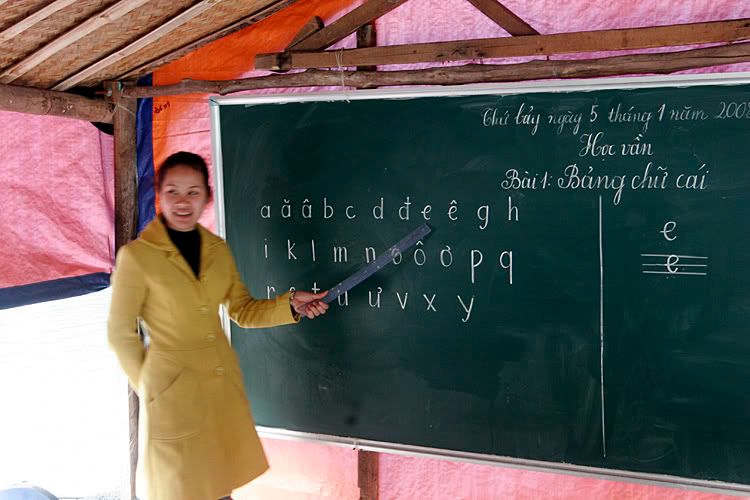 Thứ bảy ngày 5 tháng 1 năm 2008
Học vần
Bài 1: Bảng chữ cái
a ă â b c d đ e ê g h
i k l m n o ô ơ p q
r s t u ư v x y
e
e